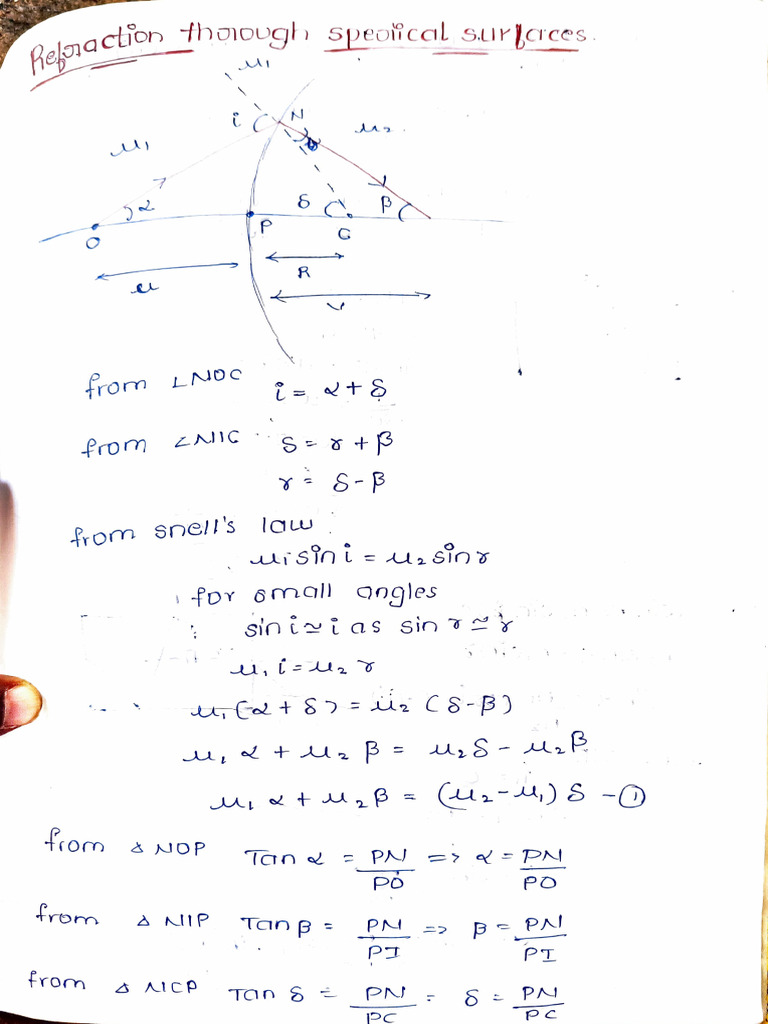 Refraction thorough sperical surfaces.
μ₁
i N μ₂
μ₁
α δ β
O P C
R
u
v
from ∠NOC i = α + δ
from ∠NIC δ = r + β
r = δ - β
from snell's law
μ₁ sin i = μ₂ sin r
for small angles
sin i ≃ i as sin r ≃ r
μ₁ i = μ₂ r
μ₁ (α + δ) = μ₂ (δ - β)
μ₁ α + μ₂ β = μ₂ δ - μ₂ β
μ₁ α + μ₂ β = (μ₂ - μ₁) δ - ①
from △ NOP Tan α = PN/PO => α = PN/PO
from △ NIP Tan β = PN/PI => β = PN/PI
from △ NCP Tan δ = PN/PC = δ = PN/PC